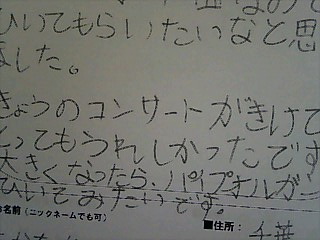 ひいてもらいたいなと思
ました。
きょうのコンサートがきけて
とってもうれしかったです
大きくなったら、パイプオルガン
ひいてみたいです。
名前(ニックネームでも可)
■住所: 千葉